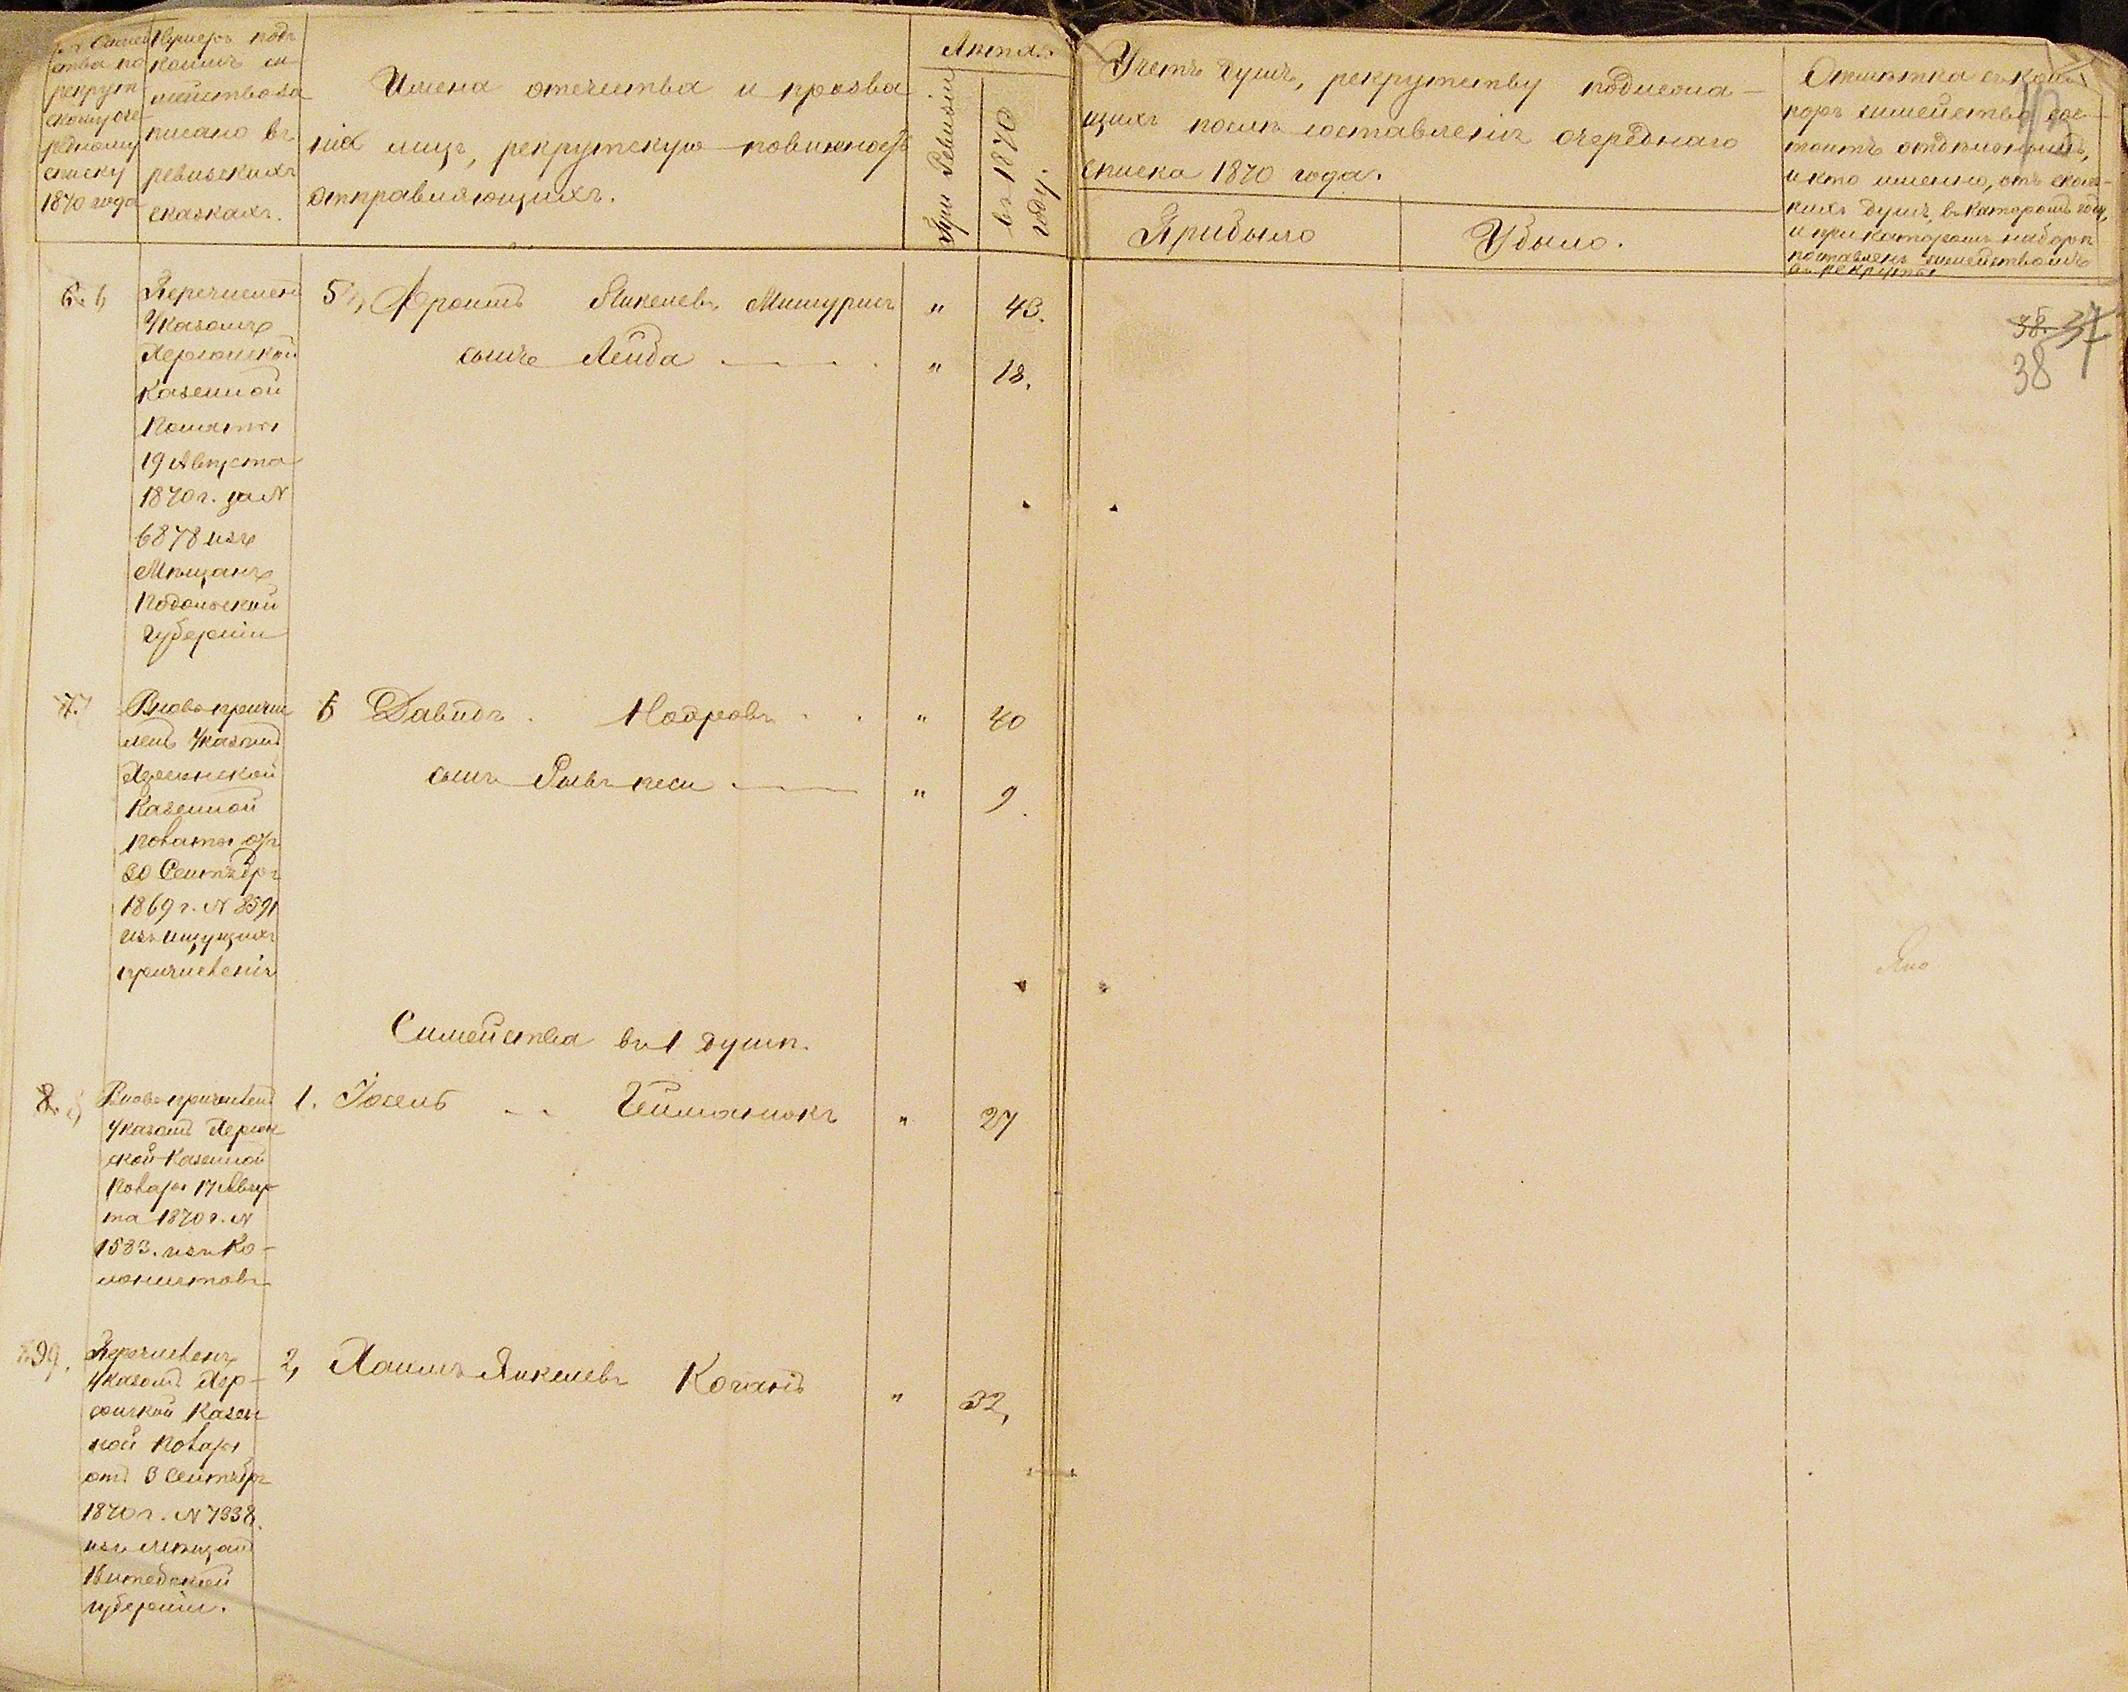 № Семей
ства по
рекрут
скому оче-
редному
списку
1870 года
Нумеръ подъ
коимъ се
мейство за
писано въ
ревизскихъ
сказкахъ.
Имена отечества и прозва
нія лицъ, рекрутскую повинность
отправляющихъ.
Лѣта.
При Ревизіи
въ 1870 году.
Учетъ душъ, рекрутству подлежа-
щихъ послѣ составленія очереднаго
списка 1870 года.
Прибыло
Убыло.
Отмѣтка съ коихъ
поръ семейство сос-
тоитъ отдѣльнымъ,
и кто именно, отъ сколь-
кихъ душъ, въ которомъ году,
и при которомъ наборѣ
поставленъ семействомъ
въ рекруты
37
38
6. 6
Перечислен
Указомъ
Херсонской
Казенной
Палаты
19 Августа
1870 г. за №
6878 изъ
Мѣщанъ
Подольской
губерніи
5, Фроимъ Янкелевъ Мишурисъ " 43.
сынъ Лейба " 18.
7.
Вновь причис
ленъ Указомъ
Херсонской
Казенной
Палаты отъ
20 Сентября
1869 г. № 8591
изъ ищущихъ
причисленія
6 Давидъ " 40
сынъ " 9.
Семейства въ 1 душѣ.
8.
Вновь причислен
Указомъ Херсон
ской Казенной
Палаты 17 Авгус
та 1870 г. №
1583. изъ Ко-
лонистовъ
1. Іосель " 27
9.
Перечисленъ
Указомъ Хер-
сонской Казен
ной Палаты
отъ 3 Сентября
1870 г. № 7338.
изъ мѣщанъ
Витебской
губерніи.
2, Хаимъ Янкелевъ Коганъ " 32,